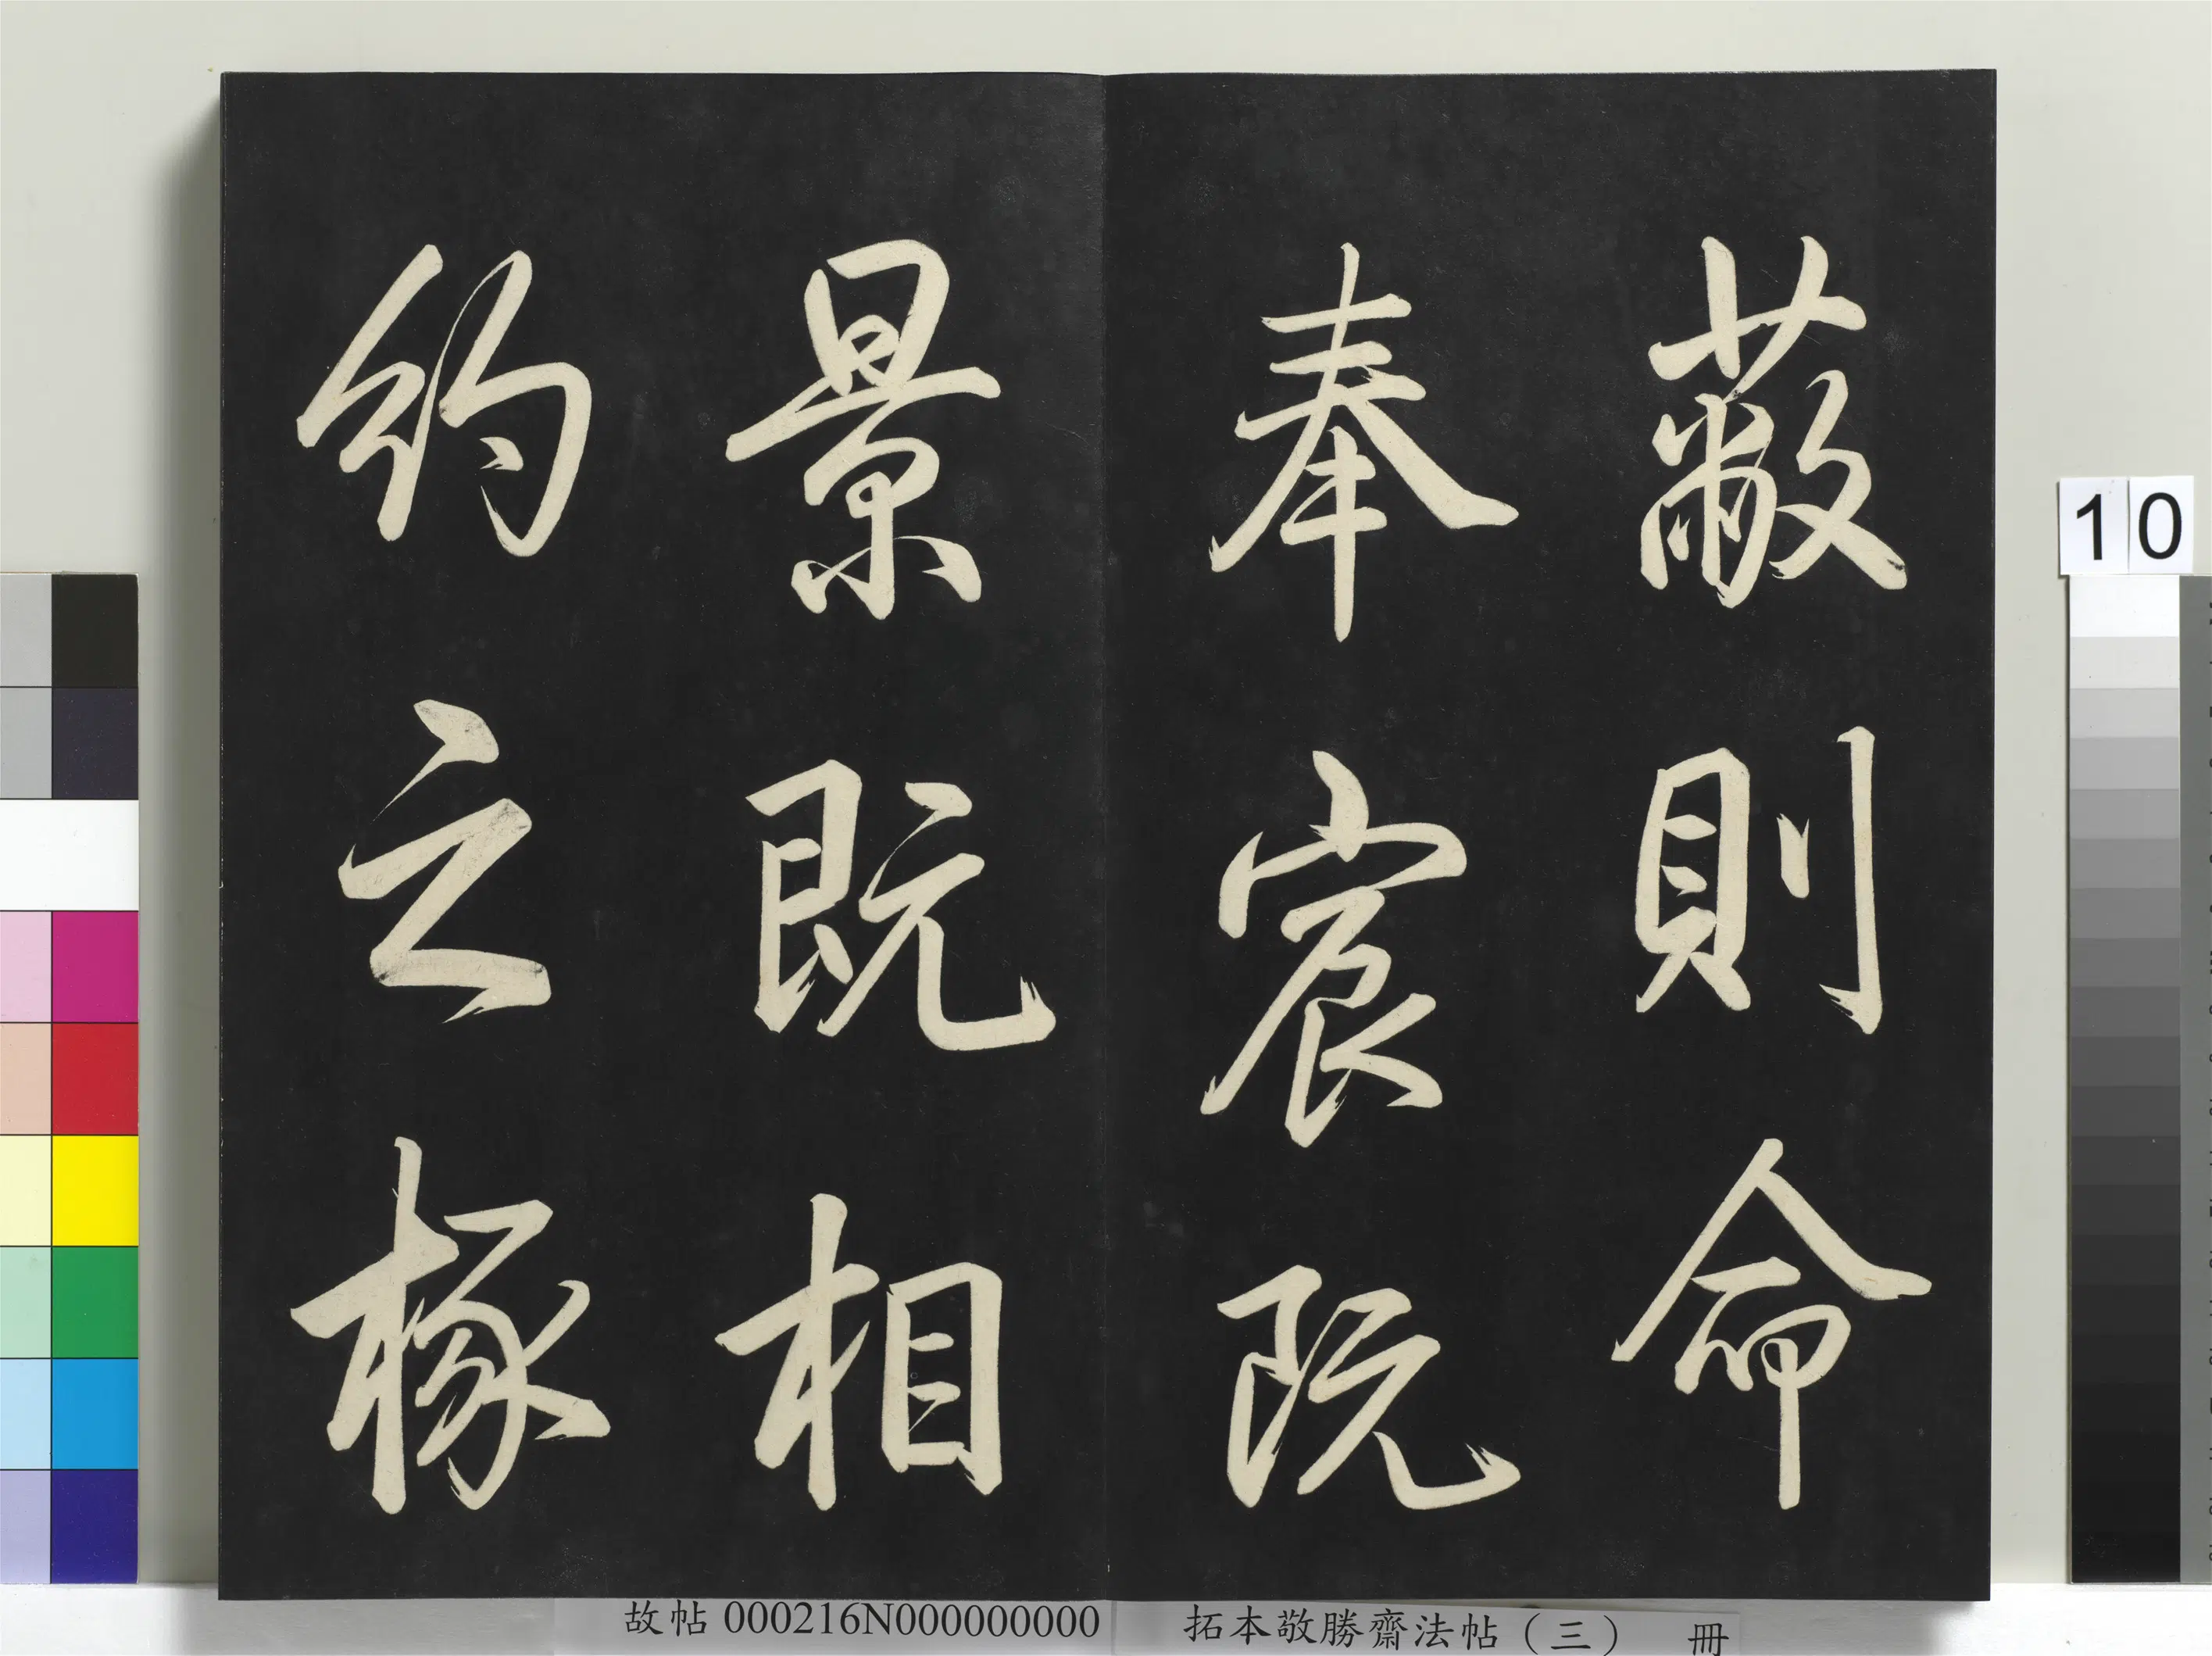 蔽則命
奉宸阮
景既相
約之椽
10
故帖 000216N000000000
拓本敬勝齋法帖（三） 冊